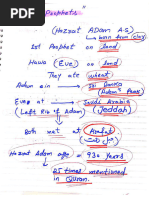 Prophets
(Hazrat ADam A.S)
born from clay
1st Prophet on land
Hawa (Eve) on land
They ate wheat
Adam ein → Sri Lanka
(Adam's Peak)
Eve at → Saudi Arabia
(Left Rib of Adam) (Jeddah)
Both met at Arafat
Hazrat Adam age = 930 years
25 times mentioned
in Quran.